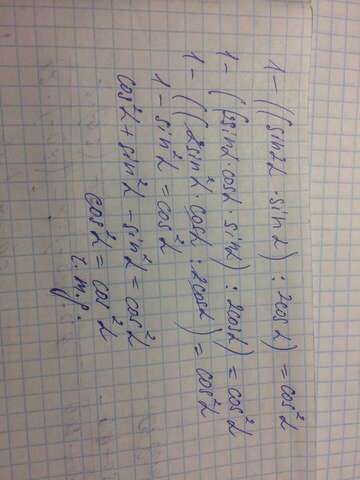 1 - ((sin2α · sin α) : 2cos α) = cos²α
1 - ((2sinα · cosα · sinα) : 2cosα) = cos²α
1 - ((2sin²α · cosα : 2cosα) = cos²α
1 - sin²α = cos²α
cos²α + sin²α - sin²α = cos²α
cos²α = cos²α
ч.т.д.